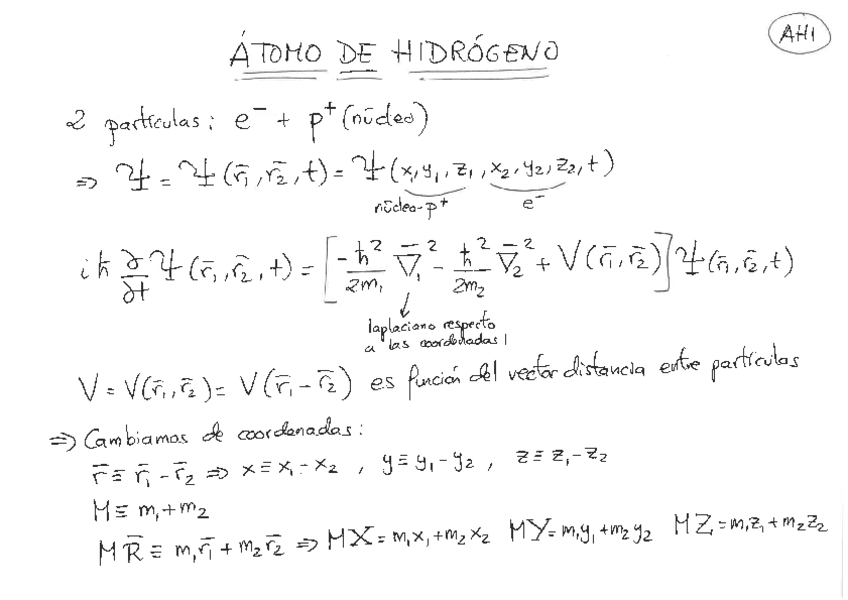 AH1
ÁTOMO DE HIDRÓGENO
2 partículas: e⁻ + p⁺ (núcleo)
⇒ Ψ = Ψ(r̄₁, r̄₂, t) = Ψ(x₁y₁, z₁, x₂, y₂, z₂, t)
núcleo-p⁺ e⁻
iħ ∂/∂t Ψ(r̄₁, r̄₂, t) = [-ħ²/2m₁ ∇̄₁² - ħ²/2m₂ ∇̄₂² + V(r̄₁, r̄₂)] Ψ(r̄₁, r̄₂, t)
laplaciano respecto
a las coordenadas 1
V = V(r̄₁, r̄₂) = V(r̄₁ - r̄₂) es función del vector distancia entre partículas
⇒ Cambiamos de coordenadas:
r̄ ≡ r̄₁ - r̄₂ ⇒ x ≡ x₁ - x₂ , y ≡ y₁ - y₂ , z ≡ z₁ - z₂
M ≡ m₁ + m₂
M R̄ ≡ m₁r̄₁ + m₂r̄₂ ⇒ MX = m₁x₁ + m₂x₂ MY = m₁y₁ + m₂y₂ MZ = m₁z₁ + m₂z₂